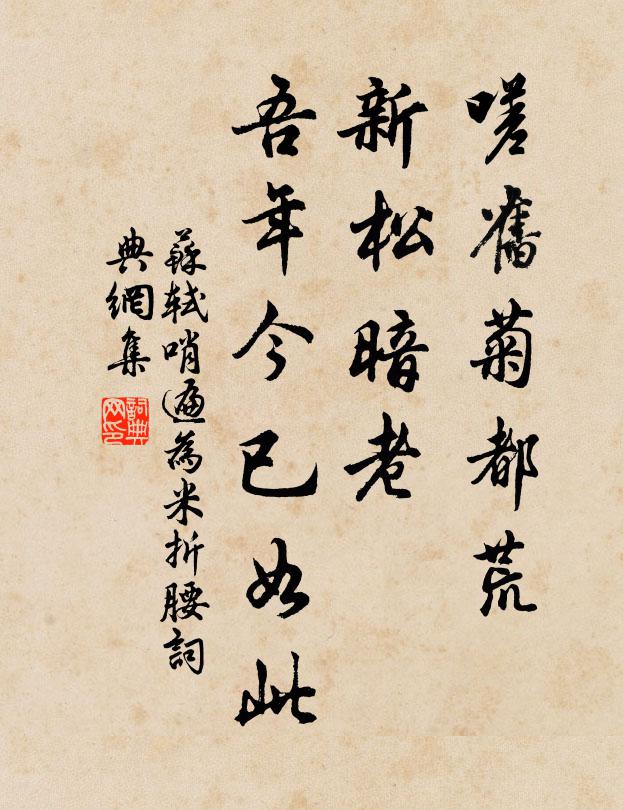 嗟舊菊都荒
新松暗老
吾年今已如此
蘇軾哨遍為米折腰詞
典網集
詞典網印